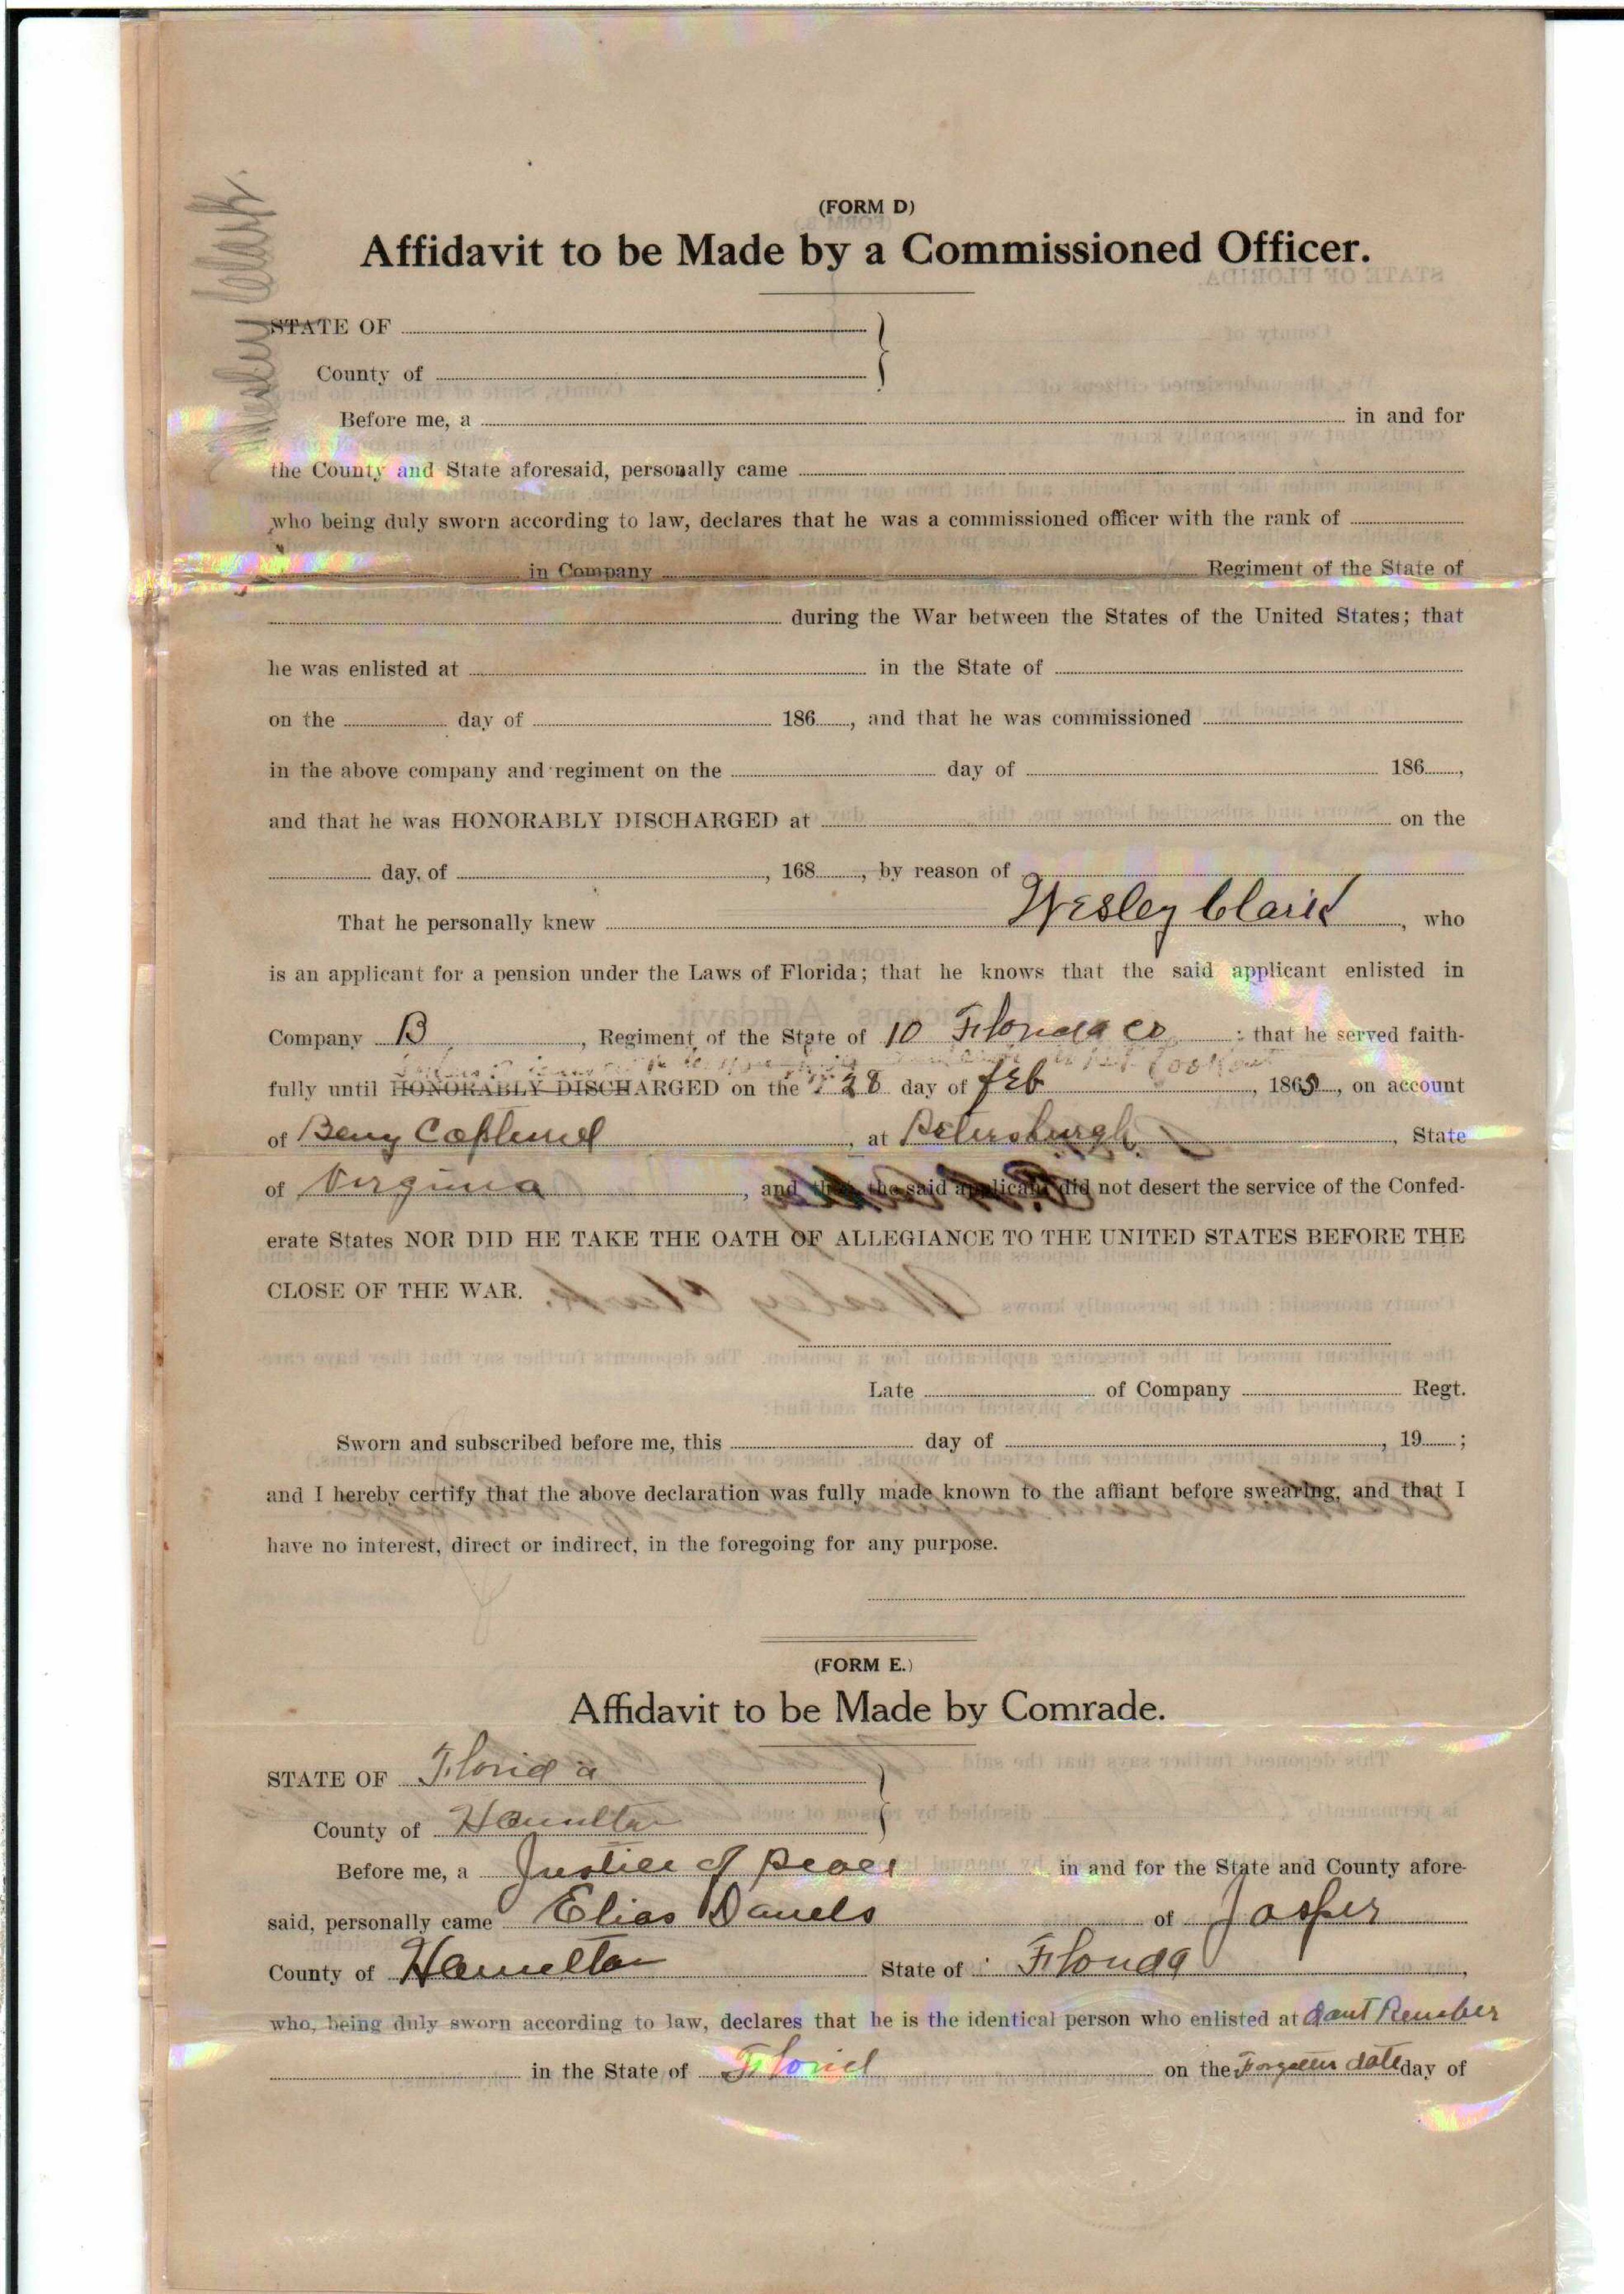 Wesley Clark.
(FORM D)
Affidavit to be Made by a Commissioned Officer.
STATE OF
County of
Before me, a in and for
the County and State aforesaid, personally came
who being duly sworn according to law, declares that he was a commissioned officer with the rank of
in Company Regiment of the State of
during the War between the States of the United States; that
he was enlisted at in the State of
on the day of 186 , and that he was commissioned
in the above company and regiment on the day of 186 ,
and that he was HONORABLY DISCHARGED at on the
day, of , 168 , by reason of
That he personally knew Wesley Clark , who
is an applicant for a pension under the Laws of Florida; that he knows that the said applicant enlisted in
Company B , Regiment of the State of 10 Florida Co : that he served faith-
fully until HONORABLY DISCHARGED on the 28 day of feb , 1865 , on account
of Beng Captured , at Petersburgh , State
of Virginia , and that the said applicant did not desert the service of the Confed-
erate States NOR DID HE TAKE THE OATH OF ALLEGIANCE TO THE UNITED STATES BEFORE THE
CLOSE OF THE WAR.
Late of Company Regt.
Sworn and subscribed before me, this day of , 19 ;
and I hereby certify that the above declaration was fully made known to the affiant before swearing, and that I
have no interest, direct or indirect, in the foregoing for any purpose.
(FORM E.)
Affidavit to be Made by Comrade.
STATE OF Florida
County of Hamilton
Before me, a Justice of peace in and for the State and County afore-
said, personally came Elias Daniels of Jasper
County of Hamilton State of Florida ,
who, being duly sworn according to law, declares that he is the identical person who enlisted at Cant Rember
in the State of Florid on the Forgotten date day of